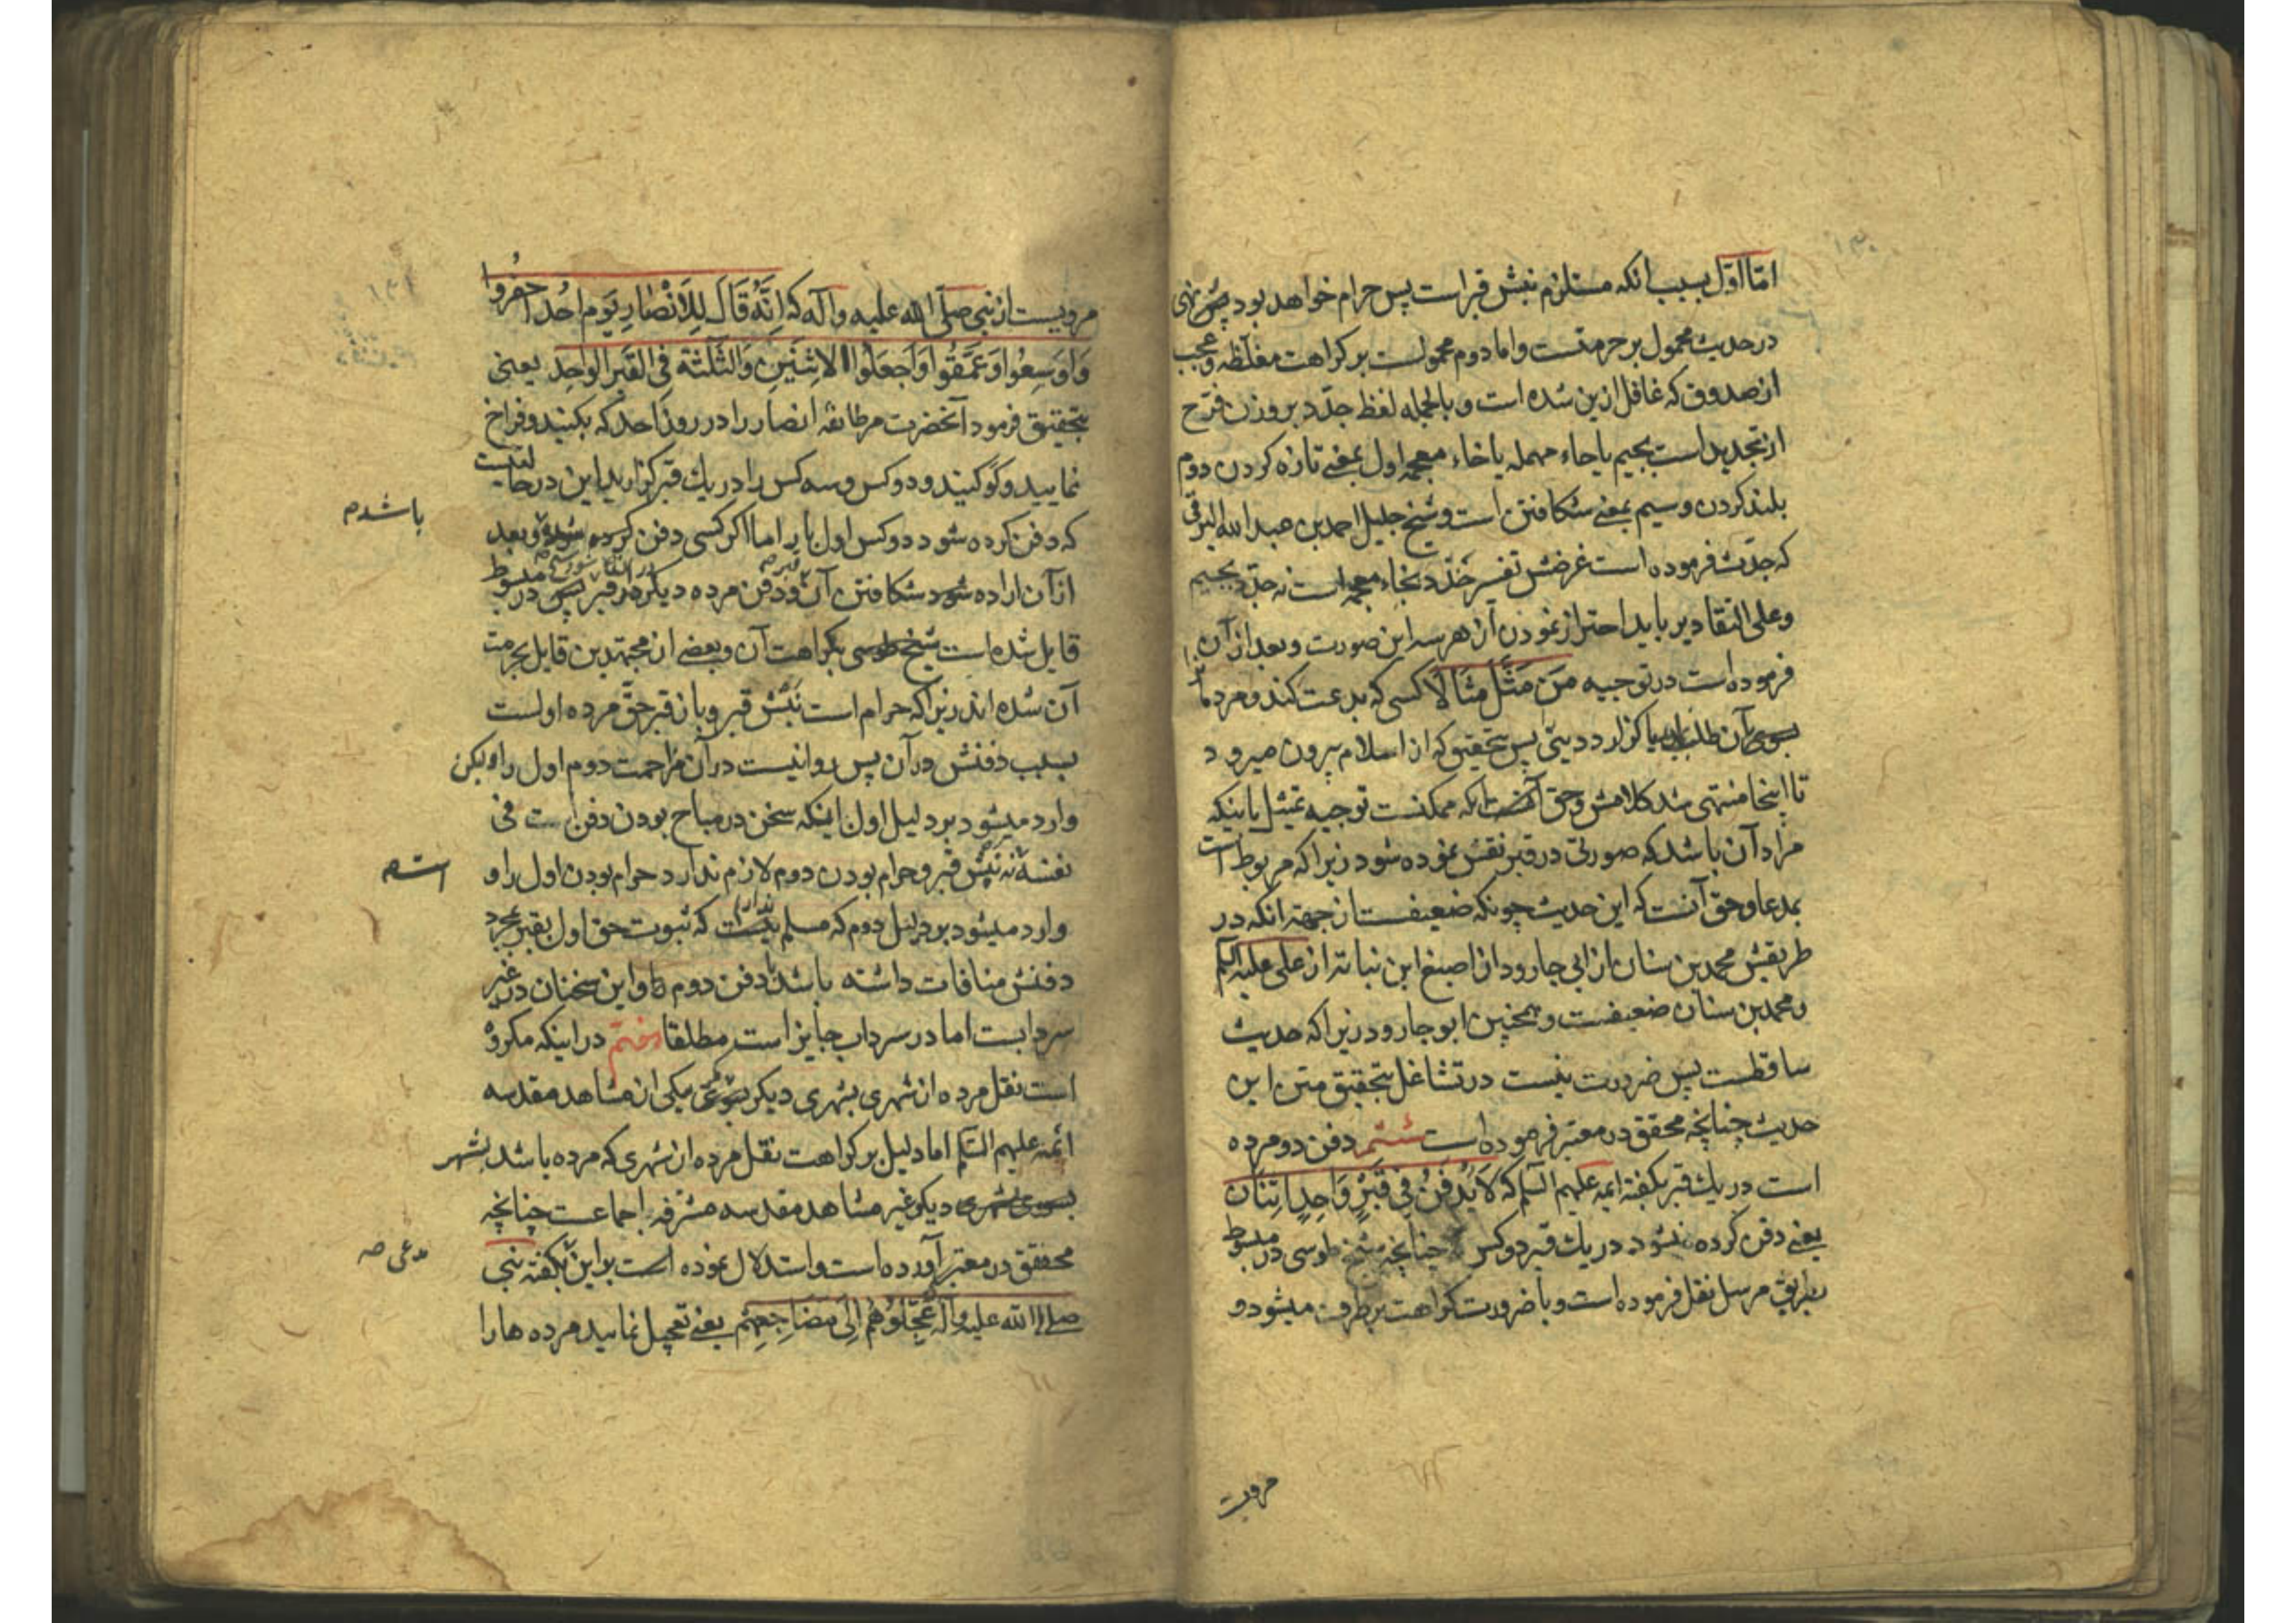 امّا اوّل بسبب انکه مستلزم نبش قبر است پس حرام خواهد بود پس نهی
در حدیث محمول بر حرمتست و اما دوم محمولست بر کراهت مغلّظه و عجب
از صدوق که غافل ازین شده است و بالجمله لفظ جدّد بر وزن فرّح
از تجدید است بجیم یا حاء مهمله یا خاء معجمه اول بمعنی تازه کردن دوم
بلند کردن و سیم بمعنی شکافتن است و شیخ جلیل احمد بن عبد الله البرقی
که جدّث فرموده است غرضش تفسیر خدّد بخاء معجمه است نه جدّد بجیم
و علی التقادیر باید احتراز نمودن از هر سه این صورت و بعد از آن
فرموده است در توجیه مَن مَثَّلَ مِثَالًا کسی که بدعت کند و مردم را
بسوی آن طلبد یا گزارد دینی پس بتحقیق که از اسلام بیرون میرود
تا اینجا منتهی شد کلامش و حق آنست که ممکنست توجیه تمثیل باینکه
مراد آن باشد که صورتی در قبر نقش نموده شود زیرا که مربوط است
بمدعا و حق آنست که این حدیث چونکه ضعیفست از جهة انکه در
طریقش محمد بن سنان از ابی جارود از اصبغ ابن نباته از علی علیه السلم
و محمد بن سنان ضعیفست و همچنین ابو جارود زیرا که حدیث
ساقطست پس ضرورت نیست در تشاغل بتحقیق متن این
حدیث چنانچه محقق در معتبر فرموده است ششم دفن دو مرده
است در یك قبر بگفته ائمه علیهم السلم که لَا یُدْفَنُ فِی قَبْرٍ وَاحِدٍ اثنَان
یعنی دفن کرده نشود در یك قبر دو کس چنانچه شیخ طوسی در مبسوط
بطریق مرسل نقل فرموده است و با ضرورت کراهت بر طرف میشود و
مرویست
مرویست از نبی صلّی الله علیه و آله که اِنَّهُ قَالَ لِلْاَنْصَارِ یَوْم اُحُد احفُروا
وَاَوسِعُوا وَعَمِّقُوا وَاَجعَلُوا الاِثنَینِ وَالثَّلٰثَة فی القَبر الوَاحِدِ یعنی
بتحقیق فرمود آنحضرت مر طائفه انصار را در روز احد که بکنید و فراخ
نمایید و گو کنید و دو کس و سه کس را در یك قبر گزارید این در حالتیست
که دفن کرده شود دو کس اول بار اما اگر کسی دفن کرده شده و بعد
باشد م
از آن اراده شود شکافتن آن قبر و دفن مرده دیگر در قبر پس در مبسوط
قایل شده است شیخ طوسی بکراهت آن و بعضی از مجتهدین قایل بحرمت
آن شده اند زیرا که حرام است نَبش قبر و باز قبر حقّ مرده اولست
بسبب دفنش در آن پس روا نیست در آن مزاحمت دوم اول را و لیکن
وارد میشود بر دلیل اول اینکه سخن در مباح بودن دفن است فی
نفسه نه نبش قبر و حرام بودن دوم لازم ندارد حرام بودن اول را و
است م
وارد میشود بر دلیل دوم که مسلم نیست که ثبوت حق اول بقبر بمجرد
دفنش منافات داشته باشد با دفن دوم و این سخنان در غیر
سردابست اما در سرداب جایز است مطلقا هفتم در اینکه مکروه
است نقل مرده از شهری بشهری دیگر بسوی یکی از مشاهد مقدسه
ائمه علیهم السلم اما دلیل بر کراهت نقل مرده از شهری که مرده باشد بشهر
بسوی شهری دیگر غیر مشاهد مقدسه مشرفه اجماعست چنانچه
محقق در معتبر آورده است و استدلال نموده است بر این بگفته نبی
مدعی صه
صلی الله علیه و آله عَجِّلُوهُم اِلَی مَضَاجِعِهِم یعنی تعجیل نمایید مرده ها را